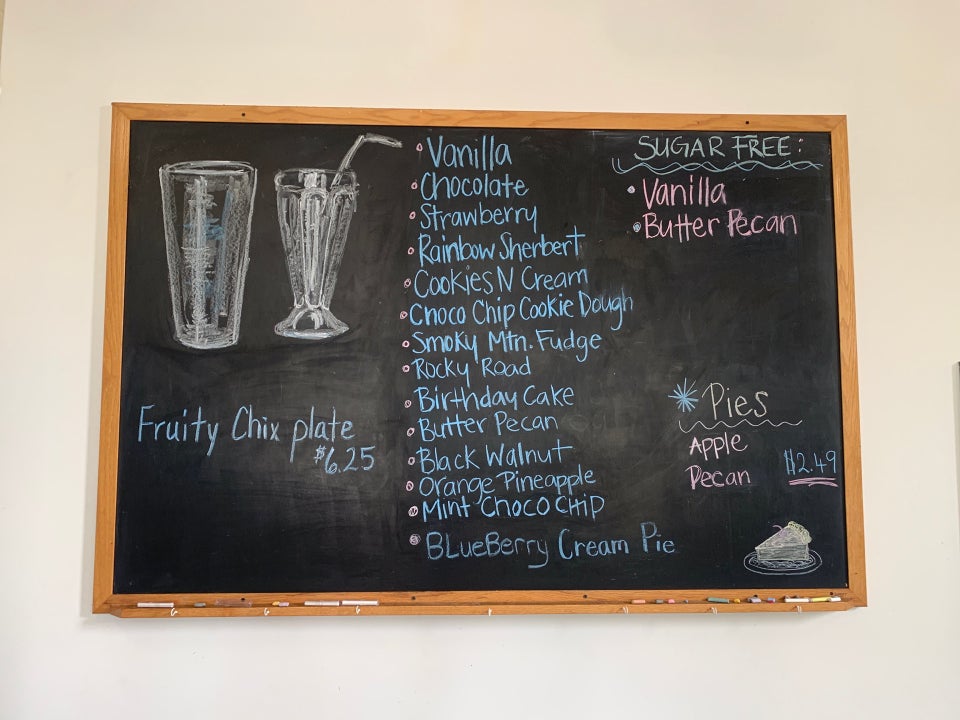 Fruity Chix plate
$6.25
Vanilla
Chocolate
Strawberry
Rainbow Sherbert
Cookies N Cream
Choco Chip Cookie Dough
Smoky Mtn. Fudge
Rocky Road
Birthday Cake
Butter Pecan
Black Walnut
Orange Pineapple
Mint Choco Chip
BLueBerry Cream Pie
SUGAR FREE:
Vanilla
Butter Pecan
Pies
Apple
Pecan
$2.49